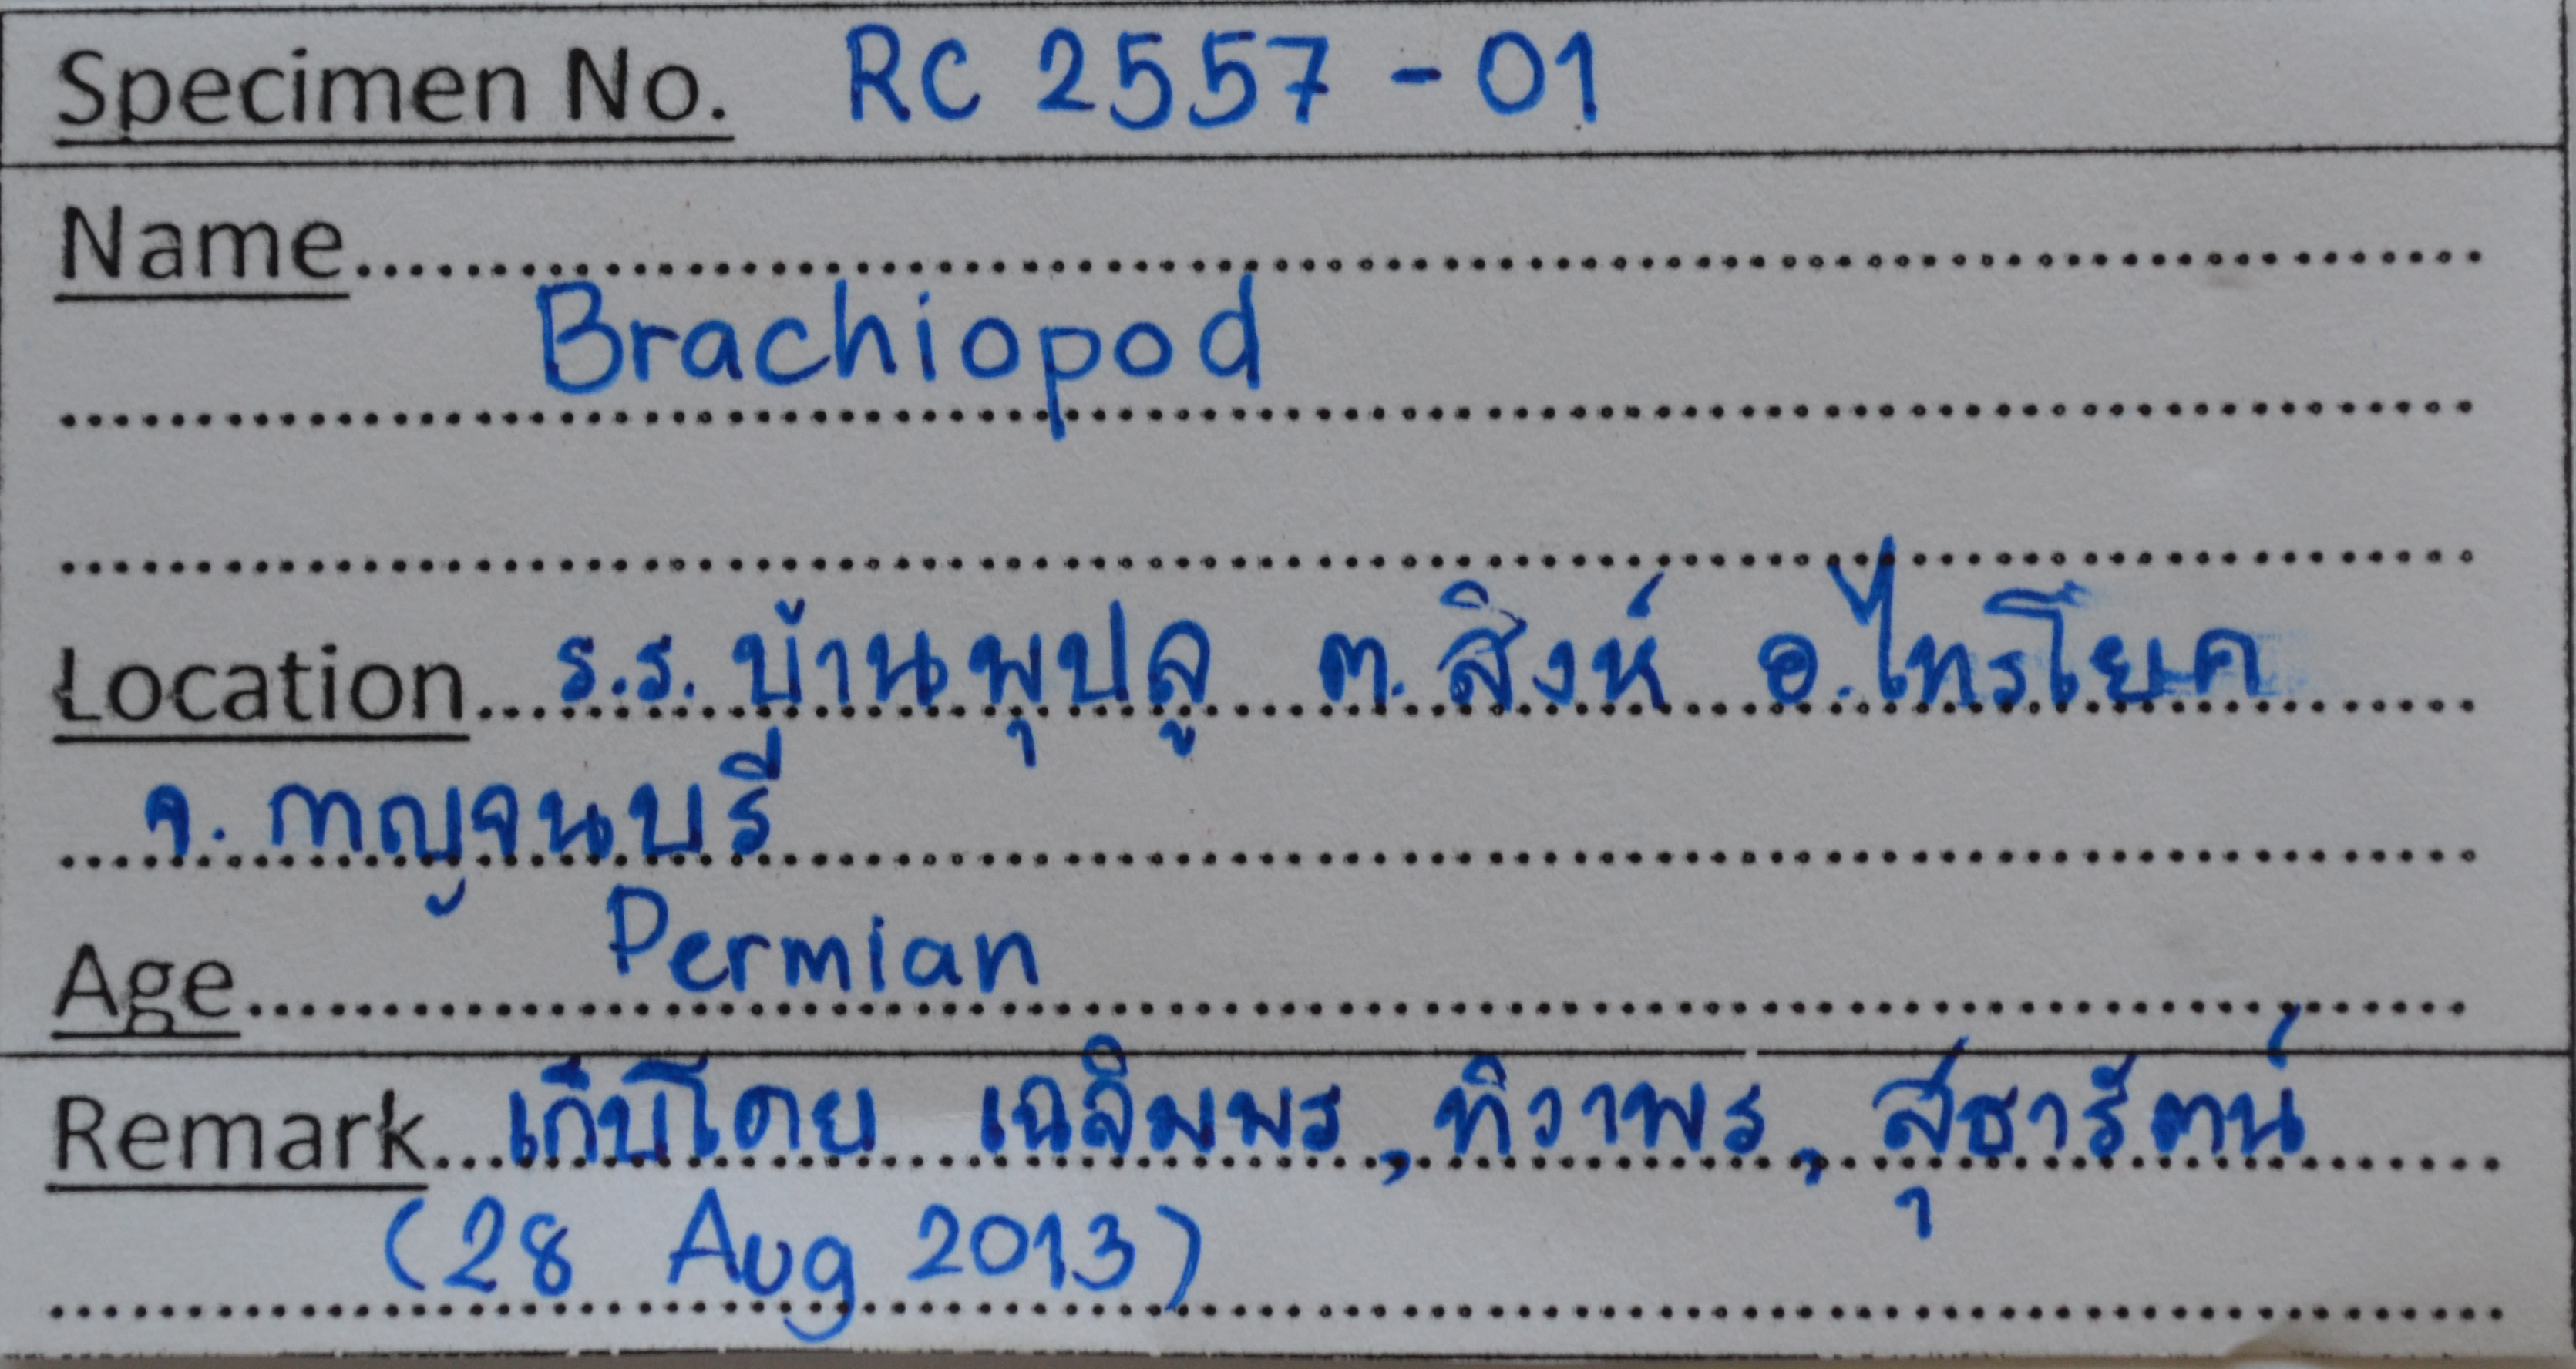 Specimen No. RC 2557 - 01
Name
Brachiopod
Location ร.ร. บ้านพุปลู ต. สิงห์ อ. ไทรโยค
จ. กาญจนบุรี
Age Permian
Remark เก็บโดย เฉลิมพร, ทิวาพร, สุธารัตน์
(28 Aug 2013)